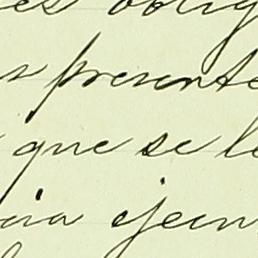 es oblig
s presente
que se le
cia ejecu